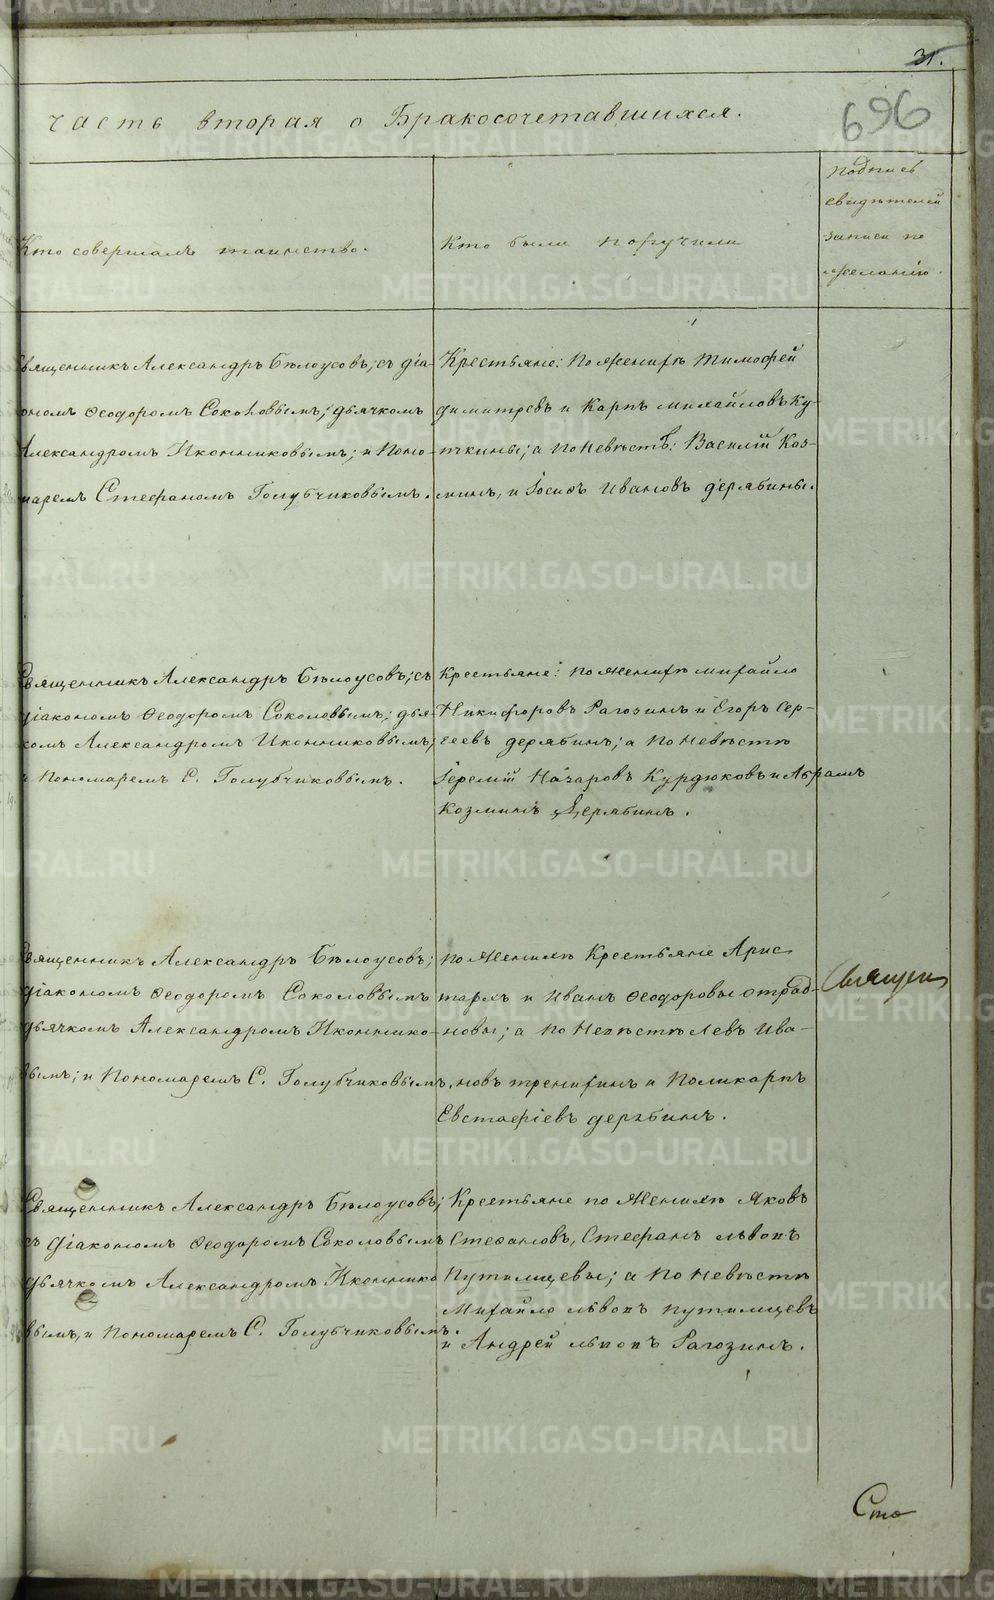 31.
696
часть вторая о Бракосочетавшихся.
Кто совершалъ таинство.
Кто были поручили
подпись
свидѣтелей
записи по
желанію.
Священникъ Александръ Бѣлоусовъ; съ діа-
кономъ Ѳеодоромъ Соколовымъ; дьячкомъ
Александромъ Иконниковымъ; и Поно-
маремъ Стефаномъ Голубчиковымъ.
Крестьяне: По Женихѣ Тимофей
Димитревъ и Карпъ Михайловъ Ку-
ткины; а По Невѣстѣ: Василій Коз-
минъ, и Іосифъ Ивановъ Дерябины.
Священникъ Александръ Бѣлоусовъ; съ
діакономъ Ѳеодоромъ Соколовымъ; дья-
комъ Александромъ Иконниковымъ;
и Пономаремъ С. Голубчиковымъ.
Крестьяне: по Женихѣ Михайло
Никифоровъ Рагозинъ и Егоръ Сер-
геевъ дерябинъ; а по Невѣстѣ
Іеремій Назаровъ Курдюковъ и Абрамъ
Козминъ Дерябинъ.
Священникъ Александръ Бѣлоусовъ;
діакономъ Ѳеодоромъ Соколовымъ
дьячкомъ Александромъ Иконнико-
вымъ; и Пономаремъ С. Голубчиковымъ.
по Женихѣ Крестьяне Арис
тархъ и Иванъ Ѳеодоровы отрад-
новы; а по Невѣстѣ Левъ Ива-
новъ тренихинъ и Поликарпъ
Евстафіевъ дерябинъ.
Священн
Священникъ Александръ Бѣлоусовъ;
съ Діакономъ Ѳеодоромъ Соколовымъ
дьячкомъ Александромъ Иконнико
вымъ, и Пономаремъ С. Голубчиковымъ.
Крестьяне по Женихѣ Яковъ
Стефановъ, Стефанъ львовъ
Путилцевы; а по Невѣстѣ
Михайло львовъ путилцевъ
и Андрей львовъ Рагозинъ.
Сто
METRIKI.GASO-URAL.RU